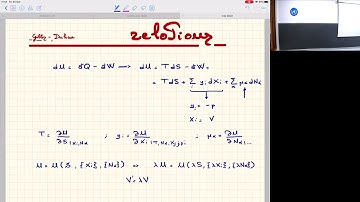 Gibbs-Duhem relations
dU = δQ - δW → dU = TdS - δW =
= TdS + Σ yi dXi + Σ μα dNα
yi = -p
Xi = V
T = ∂U/∂S |Xi,Nα ; yi = ∂U/∂Xi |T,Nα,Xj≠i ; μα = ∂U/∂Nα |...
U = U(S, {Xi}, {Nα}) ⇒ λU = U(λS, {λXi}, {λNα})
V' = λV